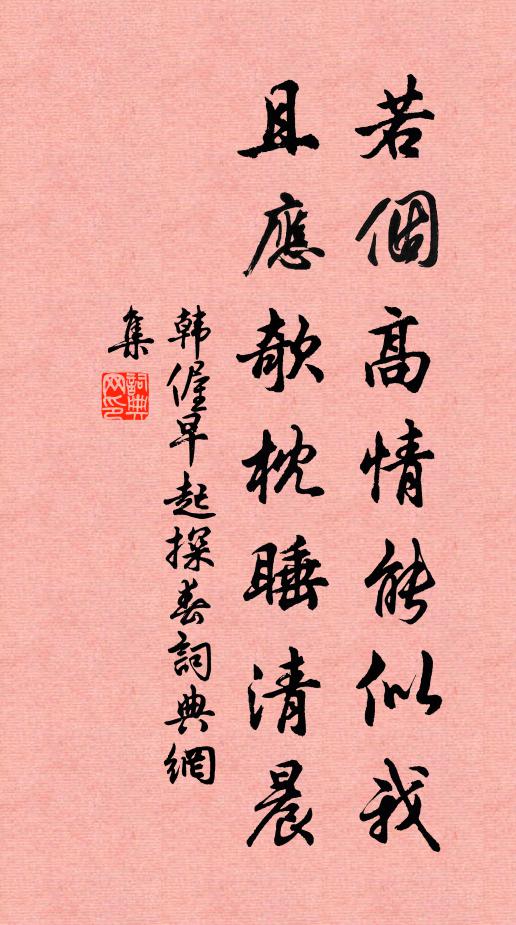 若個高情能似我
且應欹枕睡清晨
韓偓早起探春詞典網
集
詞典
网印